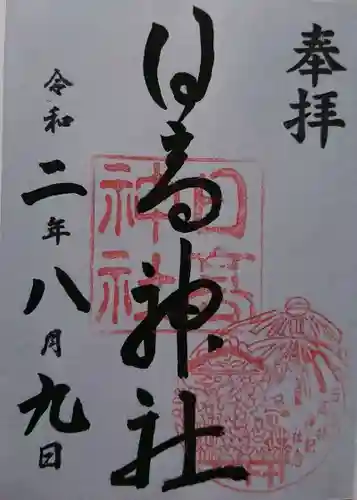 奉拝
日高神社
日高
神社
令和二年八月九日